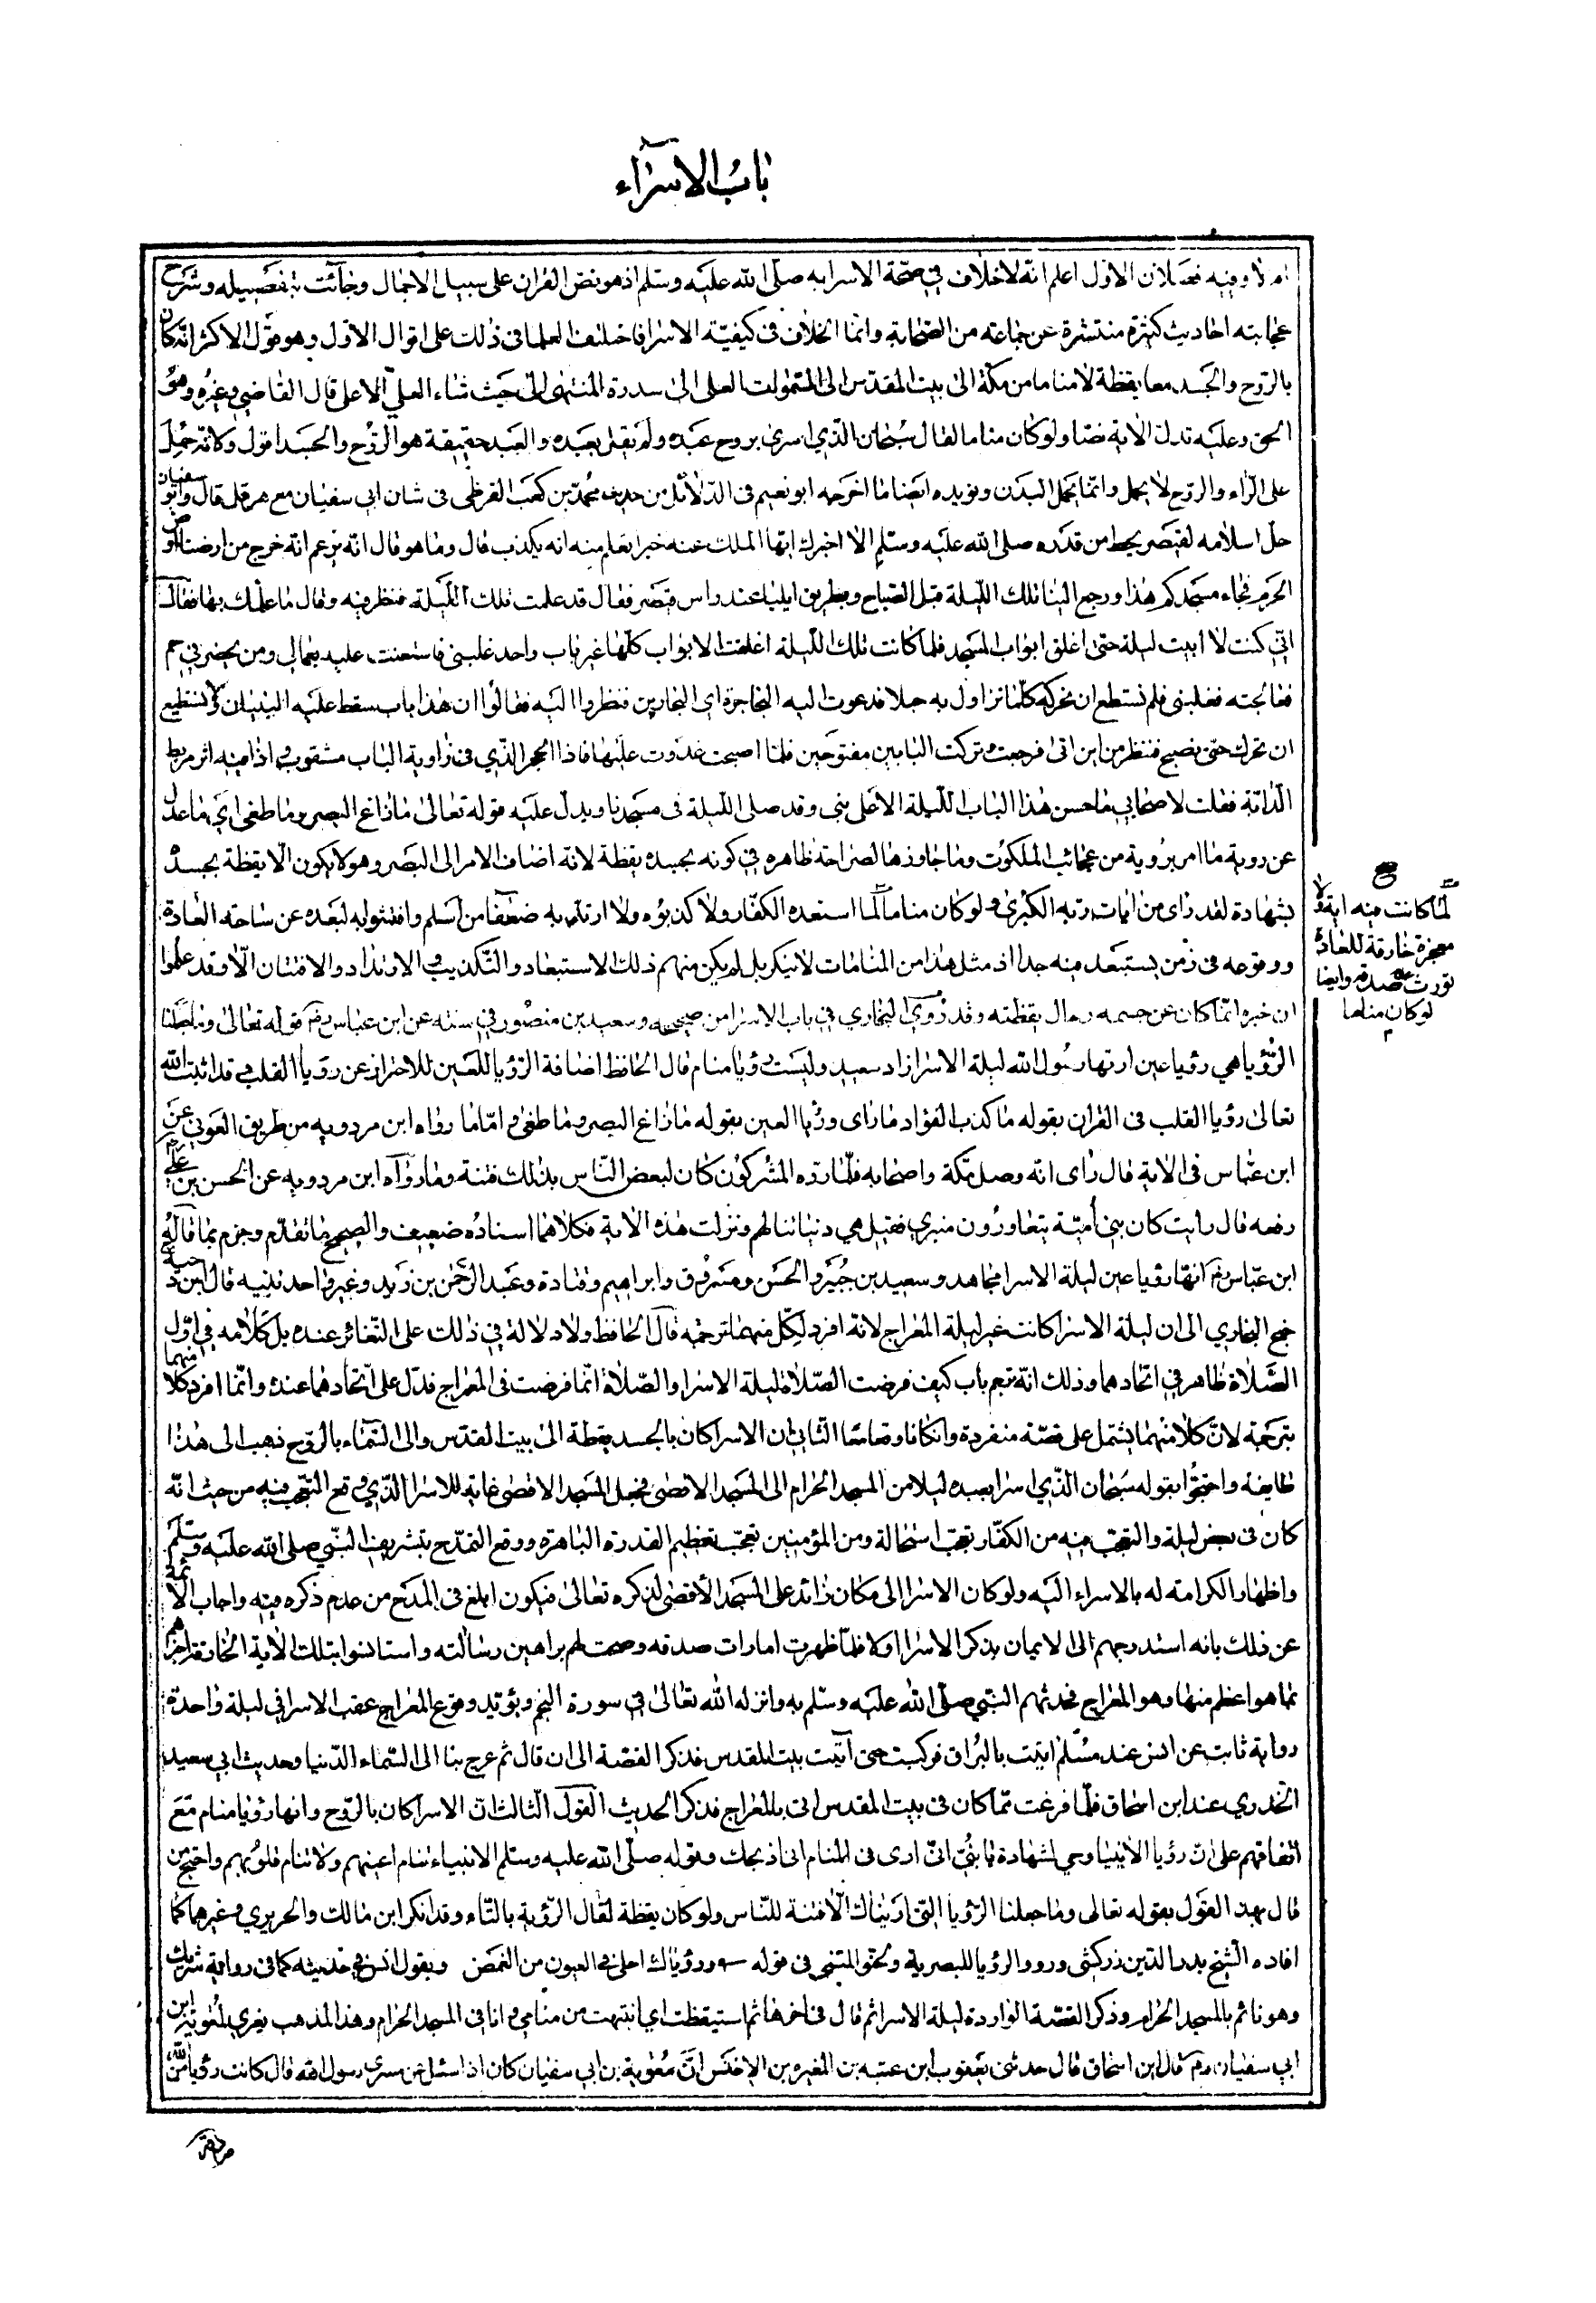 باب الاسرآء
ام لا وفيه فصلان الاول اعلم انه لا خلاف في صحة الاسرا به صلى الله عليه وسلم اذ هو نص القران على سبيل الاجمال وجآئت بتفصيله وشرح
عجايبه احاديث كثيرة منتشرة عن جماعته من الصحابة وانما الخلاف في كيفية الاسرا فاختلف العلما في ذلك على اقوال الاول وهو قول الاكثر انه كان
بالروح والجسد معا يقظة لا مناما من مكة الى بيت المقدس الى السموات العلى الى سدرة المنتهى الى حيث شاء العلي الاعلى قال القاضي وغيره وهو
الحق وعليه تدل الاية نصا ولو كان مناما لقال سبحان الذي اسرى بروح عبده ولم يقل بعبده والعبد حقيقة هو الروح والجسد اقول وكانه حمل
على الراء والروح لا يحمل وانما يحمل البدن ويؤيده ايضا ما اخرجه ابو نعيم في الدلائل من حديث محمد بن كعب القرظي في شان ابي سفيان مع هرقل قال وابو سفيان
حل اسلامه لقيصر يحط من قدره صلى الله عليه وسلم الا اخبرك ايها الملك عنه خبرا تعلم منه انه يكذب قال وما هو قال انه يزعم انه خرج من ارضنا ارض
الحرم فجاء مسجدكم هذا ورجع الينا تلك الليلة قبل الصباح وبطريق ايليا عند راس قيصر فقال قد علمت تلك الليلة فنظر فيه وقال ما علمك بها فقال
اني كنت لا ابيت ليلة حتى اغلق ابواب المسجد فلما كانت تلك الليلة اغلقت الابواب كلها غير باب واحد غلبني فاستعنت عليه بعمالي ومن يحضرني هم
فعالجته فغلبني فلم نستطع ان نحركه كلما نزاول به جبلا فدعوت اليه النجاجرة اي النجارين فنظروا اليه فقالوا ان هذا باب سقط عليه البنيان لا نستطيع
ان نحركه حتى نصبح فننظر من اين اتى فرجعت وتركت البابين مفتوحين فلما اصبحت غدوت عليها فاذا الحجر الذي في زاوية الباب مثقوب واذا فيه اثر مربط
الدابة فقلت لاصحابي ما حبس هذا الباب الليلة الا على نبي وقد صلى الليلة في مسجدنا ويدل عليه قوله تعالى ما زاغ البصر وما طغى اي ما عدل
عن روية ما امر بروية من عجائب الملكوت وما جاوزها لصراحة ظاهره في كونه بجسده يقظة لانه اضاف الامر الى البصر وهو لا يكون الا يقظة بجسده
بشهادة لقد راى من ايات ربه الكبرى ولو كان مناما لما استعده الكفار ولا كذبوه ولا ارتد به ضعفا من اسلم وافتتنوا به لبعده عن ساحة العادة
ووقوعه في زمن يستبعد منه جدا اذ مثل هذا من المنامات لا ينكر بل لم يكن منهم ذلك الاستبعاد والتكذيب والارتداد والافتنان الا وقد علموا
ان خبره انما كان عن جسمه وحال يقظته وقد روى البخاري في باب الاسرا من صحيحه وسعيد بن منصور في سننه عن ابن عباس رض قوله تعالى وما جعلنا
الرؤيا هي رؤيا عين اريها رسول الله ليلة الاسرا زاد سعيد وليست رؤيا منام قال الحافظ اضافة الرؤيا للعين للاحتراز عن رؤيا القلب قد اثبت الله
تعالى رؤيا القلب في القران بقوله ما كذب الفؤاد ما راى ورؤيا العين بقوله ما زاغ البصر وما طغى واما ما رواه ابن مردويه من طريق العوفي عن
ابن عباس في الاية قال راى انه وصل مكة واصحابه فلما رده المشركون كان لبعض الناس بذلك فتنة وما رواه ابن مردويه عن الحسن بن علي
رفعه قال رايت كان بني أمية يتعاورون منبري فقيل هي دنيا تنالهم ونزلت هذه الاية فكلاهما اسناده ضعيف والصحيح ما تقدم وجزم بما قاله
ابن عباس رض انها رؤيا عين ليلة الاسرا مجاهد وسعيد بن جبير والحسن ومسروق وابراهيم وقتادة وعبد الرحمن بن زيد وغير واحد تنبيه قال ابن دحية
جنح البخاري الى ان ليلة الاسرا كانت غير ليلة المعراج لانه افرد لكل منهما ترجمة قال الحافظ ولا دلالة في ذلك على التغائر عنده بل كلامه في اول
الصلاة ظاهر في اتحادهما وذلك انه ترجم باب كيف فرضت الصلاة ليلة الاسرا والصلاة انما فرضت في المعراج فدل على اتحادهما عنده وانما افرد كلا منهما
بترجمة لان كلا منهما يشتمل على قصة منفردة وان كانا وقعا معا الثاني ان الاسرا كان بالجسد يقظة الى بيت المقدس والى السماء بالروح ذهب الى هذا
طايفة واحتجوا بقوله سبحان الذي اسرا بعبده ليلا من المسجد الحرام الى المسجد الاقصى فجعل المسجد الاقصى غاية للاسرا الذي وقع التعجب فيه من حيث انه
كان في بعض ليلة والتعجب فيه من الكفار تعجب استحالة ومن المؤمنين تعجب تعظيم القدرة الباهرة ووقع التمدح بتشريف النبي صلى الله عليه وسلم
واظهار الكرامة له بالاسراء اليه ولو كان الاسرا الى مكان زائد على المسجد الأقصى لذكره تعالى فيكون ابلغ في المدح من عدم ذكره فيه واجاب الائمة
عن ذلك بانه استدرجهم الى الايمان بذكر الاسرا اولا فلما ظهرت امارات صدقه وصحت لهم براهين رسالته واستانسوا بتلك الاية الخارقة اخبرهم
بما هو اعظم منها وهو المعراج فحدثهم النبي صلى الله عليه وسلم به وانزله الله تعالى في سورة النجم ويؤيد وقوع المعراج عقب الاسرا في ليلة واحدة
رواية ثابت عن انس عند مسلم اتيت بالبراق فركبت حتى آتيت بيت المقدس فذكر القصة الى ان قال ثم عرج بنا الى السماء الدنيا وحديث ابي سعيد
الخدري عند ابن اسحاق فلما فرغت مما كان في بيت المقدس اتى بالمعراج فذكر الحديث القول الثالث ان الاسرا كان بالروح وانها رؤيا منام مع
اتفاقهم على ان رؤيا الانبيا وحي لشهادة يا بني اني ارى في المنام اني اذبحك وقوله صلى الله عليه وسلم الانبياء تنام اعينهم ولا تنام قلوبهم واحتج من
قال بهذا القول بقوله تعالى وما جعلنا الرؤيا التي اريناك الا فتنة للناس ولو كان يقظة لقال الرؤية بالتاء وقد انكر ابن مالك والحريري وغيرهما كما
افاده الشيخ بدر الدين زركشي ورود الرؤيا للبصرية ولحنوا المتنبي في قوله ورؤياك احلى في العيون من الغمض وبقول انس في حديثه كما في رواية شريك
وهو نائم بالمسجد الحرام وذكر القصة الواردة ليلة الاسرا ثم قال في اخرها ثم استيقظت اي انتبهت من منامي وانا في المسجد الحرام وهذا المذهب يعزى لمعوية ابن
ابي سفيان رض قال ابن اسحاق قال حدثني يعقوب ابن عتبه بن المغيره بن الاخنس ان معوية بن ابي سفيان كان اذا سئل عن مسرى رسول الله قال كانت رؤيا من الله
لما كانت فيه اية ولا
معجزة خارقة للعادة
تورث صدقه وايضا
لو كان مناما
صادقة